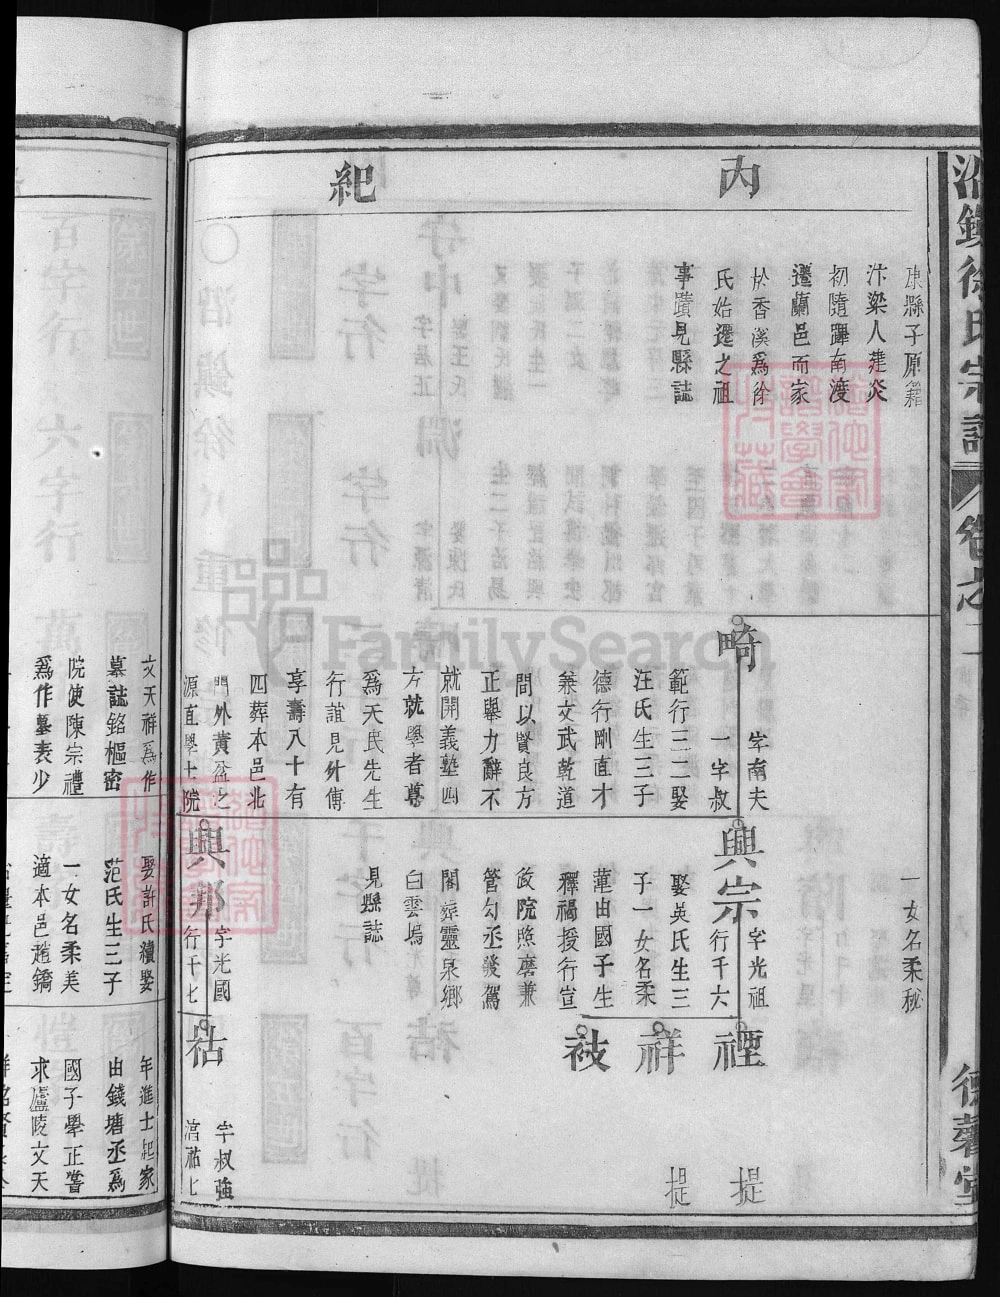 沿鎮徐氏宗譜
卷之二
德馨堂
內
紀
康縣子原籍
汴梁人建炎
初隨蹕南渡
遷蘭邑而家
於香溪爲徐
氏始遷之祖
事蹟見縣誌
畸
字南夫
一字叔
範行三二娶
汪氏生三子
德行剛直才
兼文武乾道
間以賢良方
正舉力辭不
就開義塾四
方就學者尊
爲天民先生
行誼見外傳
享壽八十有
四葬本邑北
門外黃盆之
源直學士院
一女名柔秘
興宗
字光祖
行千六
娶吳氏生三
子一女名柔
蕙由國子生
釋褐授行宣
政院照磨兼
管勾丞發駕
閣葬靈泉鄉
白雲塢
見縣誌
興邦
字光國
行千七
禋
祥
祓
祜
提
提
字叔強
諱祜七
文天祥爲作
墓誌銘樞密
院使陳宗禮
爲作墓表少
娶許氏續娶
范氏生三子
一女名柔美
適本邑趙鐈
年進士起家
由錢塘丞爲
國子學正嘗
求廬陵文天
FamilySearch